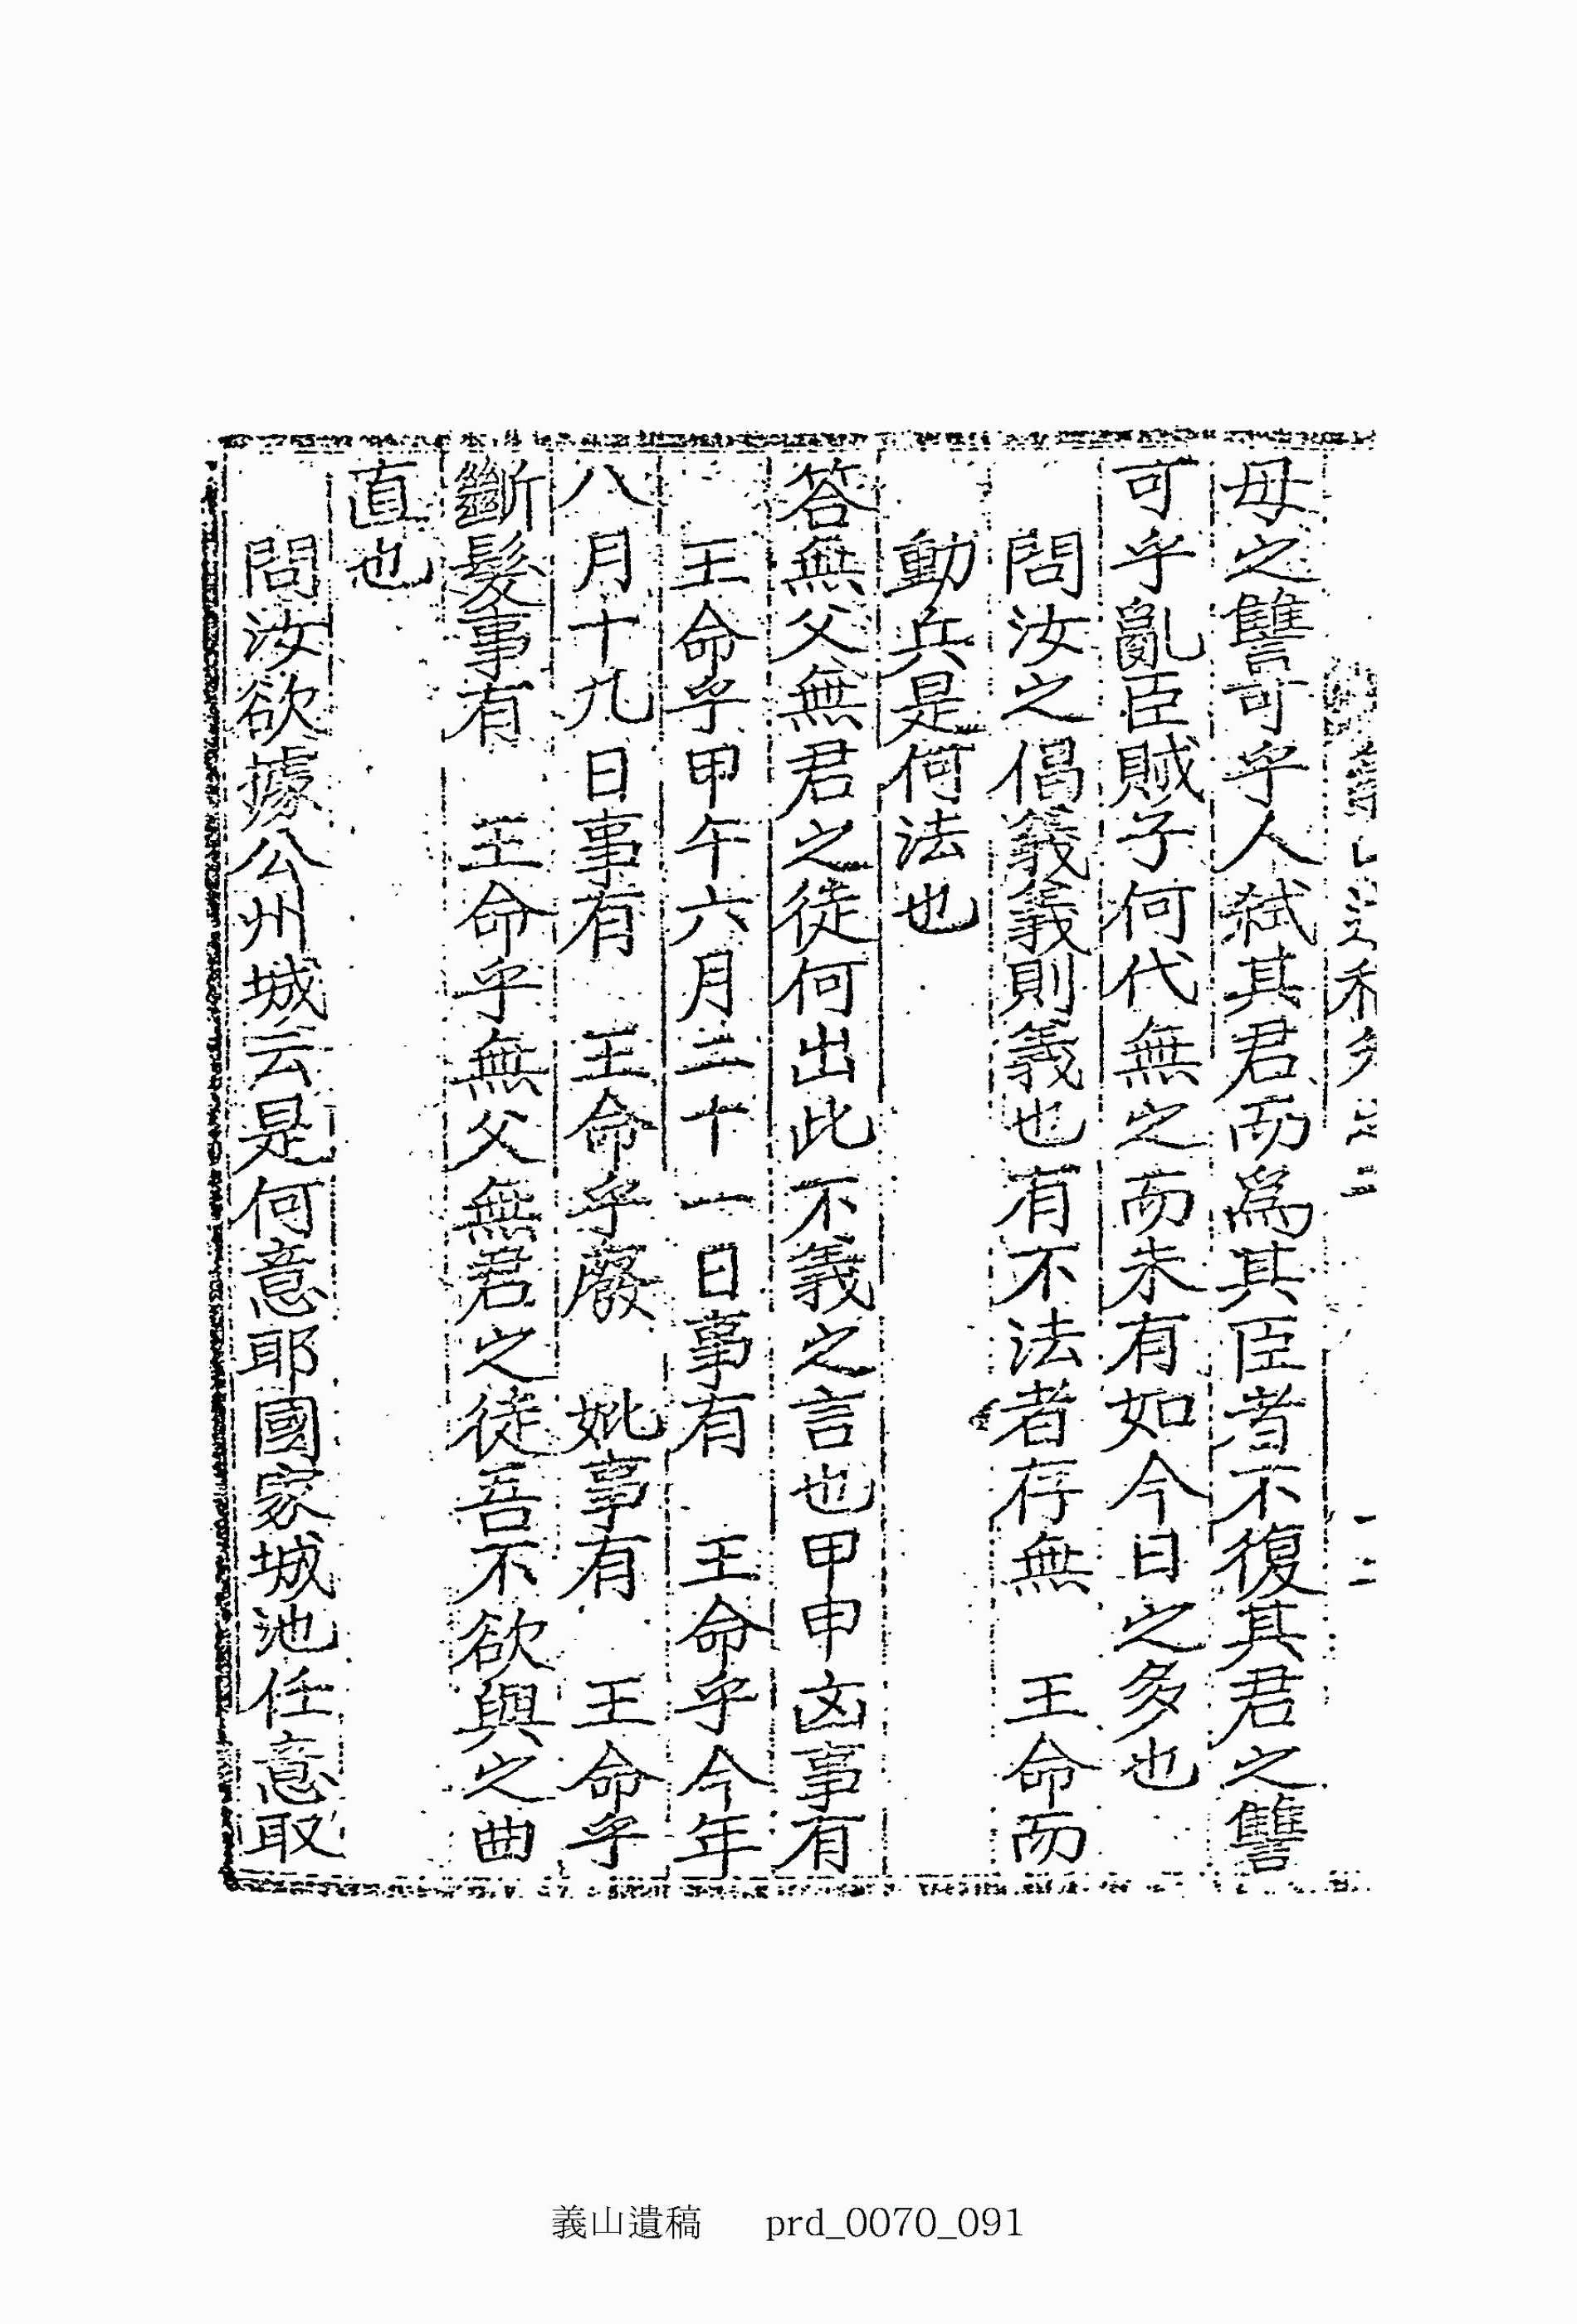 母之讐可乎人弑其君而爲其臣者不復其君之讐
可乎亂臣賊子何代無之而未有如今日之多也
問汝之倡義義則義也有不法者存無 王命而
動兵是何法也
答無父無君之徒何出此不義之言也甲申凶事有
王命乎甲午六月二十一日事有 王命乎今年
八月十九日事有 王命乎廢 妣事有 王命乎
斷髮事有 王命乎無父無君之徒吾不欲與之曲
直也
問汝欲據公州城云是何意耶國家城池任意取
義山遺稿 prd_0070_091